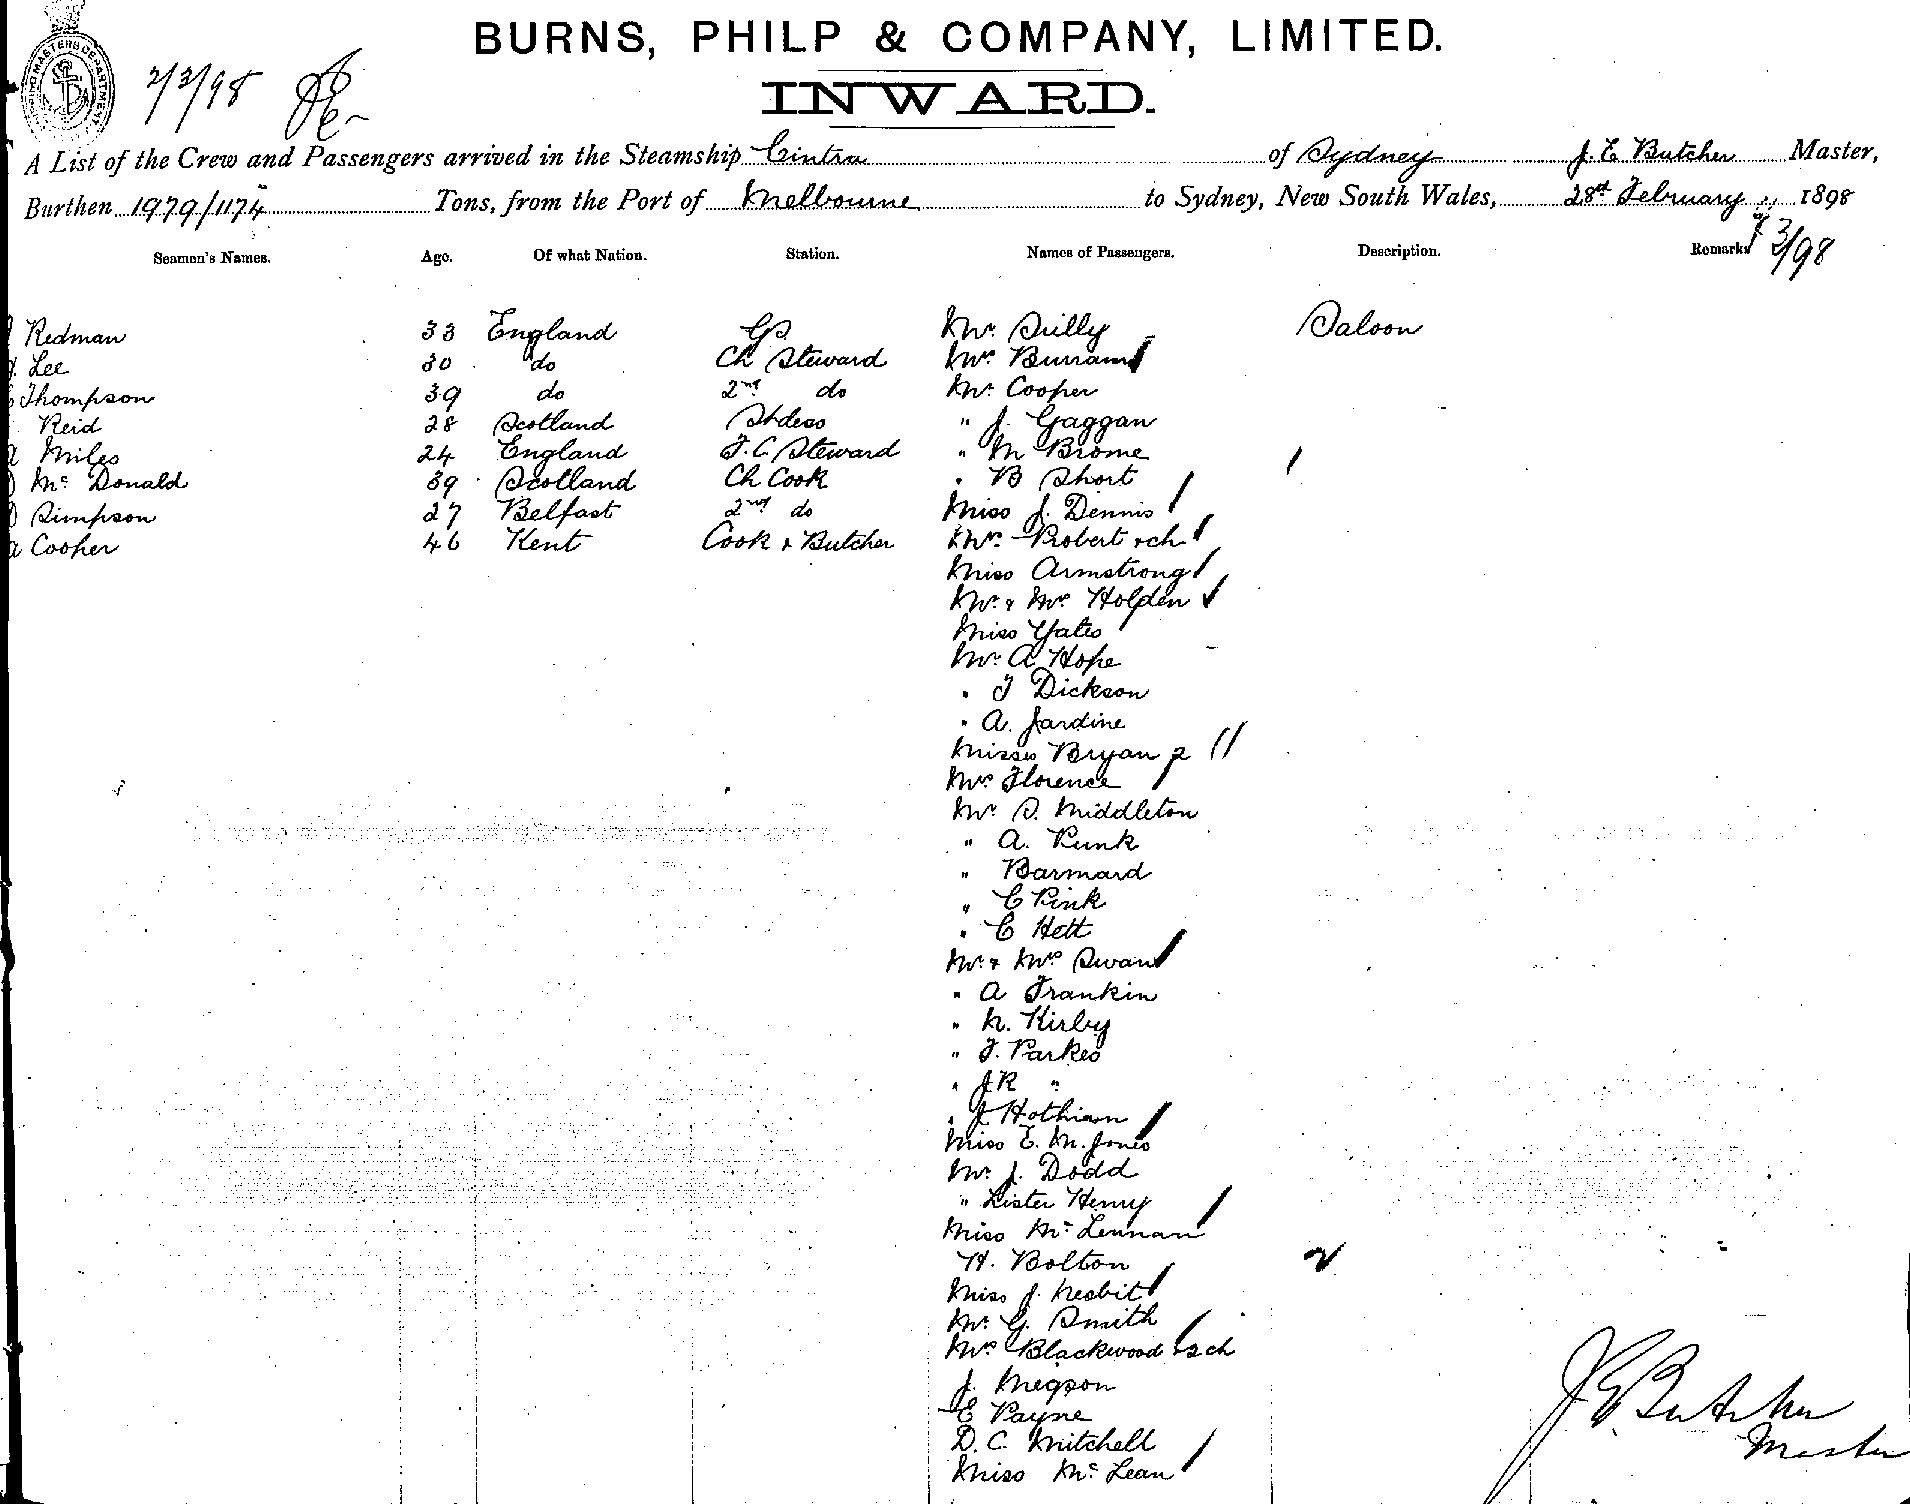 BURNS, PHILP & COMPANY, LIMITED.
INWARD.
2/3/98
A List of the Crew and Passengers arrived in the Steamship Cintra of Sydney J. E Butcher Master,
Burthen 1979/1174 Tons, from the Port of Melbourne to Sydney, New South Wales, 28th February 1898
3/98
Seamen's Names. Age. Of what Nation. Station. Names of Passengers. Description. Remarks
Redman 33 England GS Mr. Silly Saloon
Lee 30 do Ch Steward Mrs
Thompson 39 do 2nd do Mr. Cooper
Reid 28 Scotland Stdess " J. Gaggan
Miles 24 England F.C. Steward " M Brome
Mc Donald 39 Scotland Ch Cook " B Short
Simpson 27 Belfast 2nd do Miss J. Dennis
Cooper 46 Kent Cook & Butcher Mrs. Robert & ch
Miss Armstrong
Mr. & Mrs Holden
Miss Yates
Mr. A Hope
" J Dickson
" A. Jardine
Misses Bryan 2
Mrs Florence
Mr S. Middleton
" A. Runk
" Barmard
" C Pink
" C Hett
Mr. & Mrs Swan
" A Frankin
" N. Kirby
" F. Parkes
" J.R "
" J
Miss E. M. Jones
Mr. J. Dodd
" Lister Henry
Miss Mc Lennan
H. Bolton
Miss J. Nesbit
Mr. G. Smith
Mrs Blackwood & 2 ch
J. Megson
E Payne
D. C. Mitchell
Miss Mc Lean
J E Butcher
Master